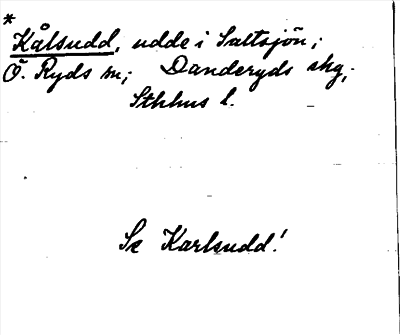 *
Kålsudd, udde i Saltsjön;
Ö. Ryds sn; Danderyds skg,
Sthlms l.
Se Karlsudd!